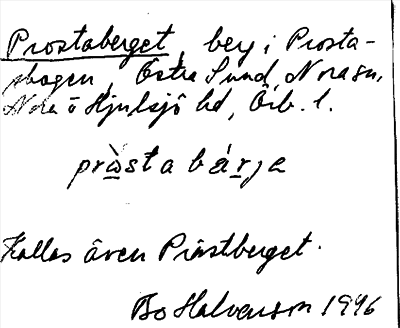 Prostaberget, berg i Prosta-
skogen, Östra Sund, Nora sn,
Nora o Hjulsjö hd, Örb. l.
pròsta bárja
Kallas även Prästberget.
Bo Halvarson 1946